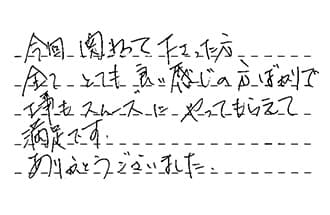 今回 関わって下さった方
全て とても 良い感じの方ばかりで
工事もスムーズに やってもらえて
満足です。
ありがとうございました。